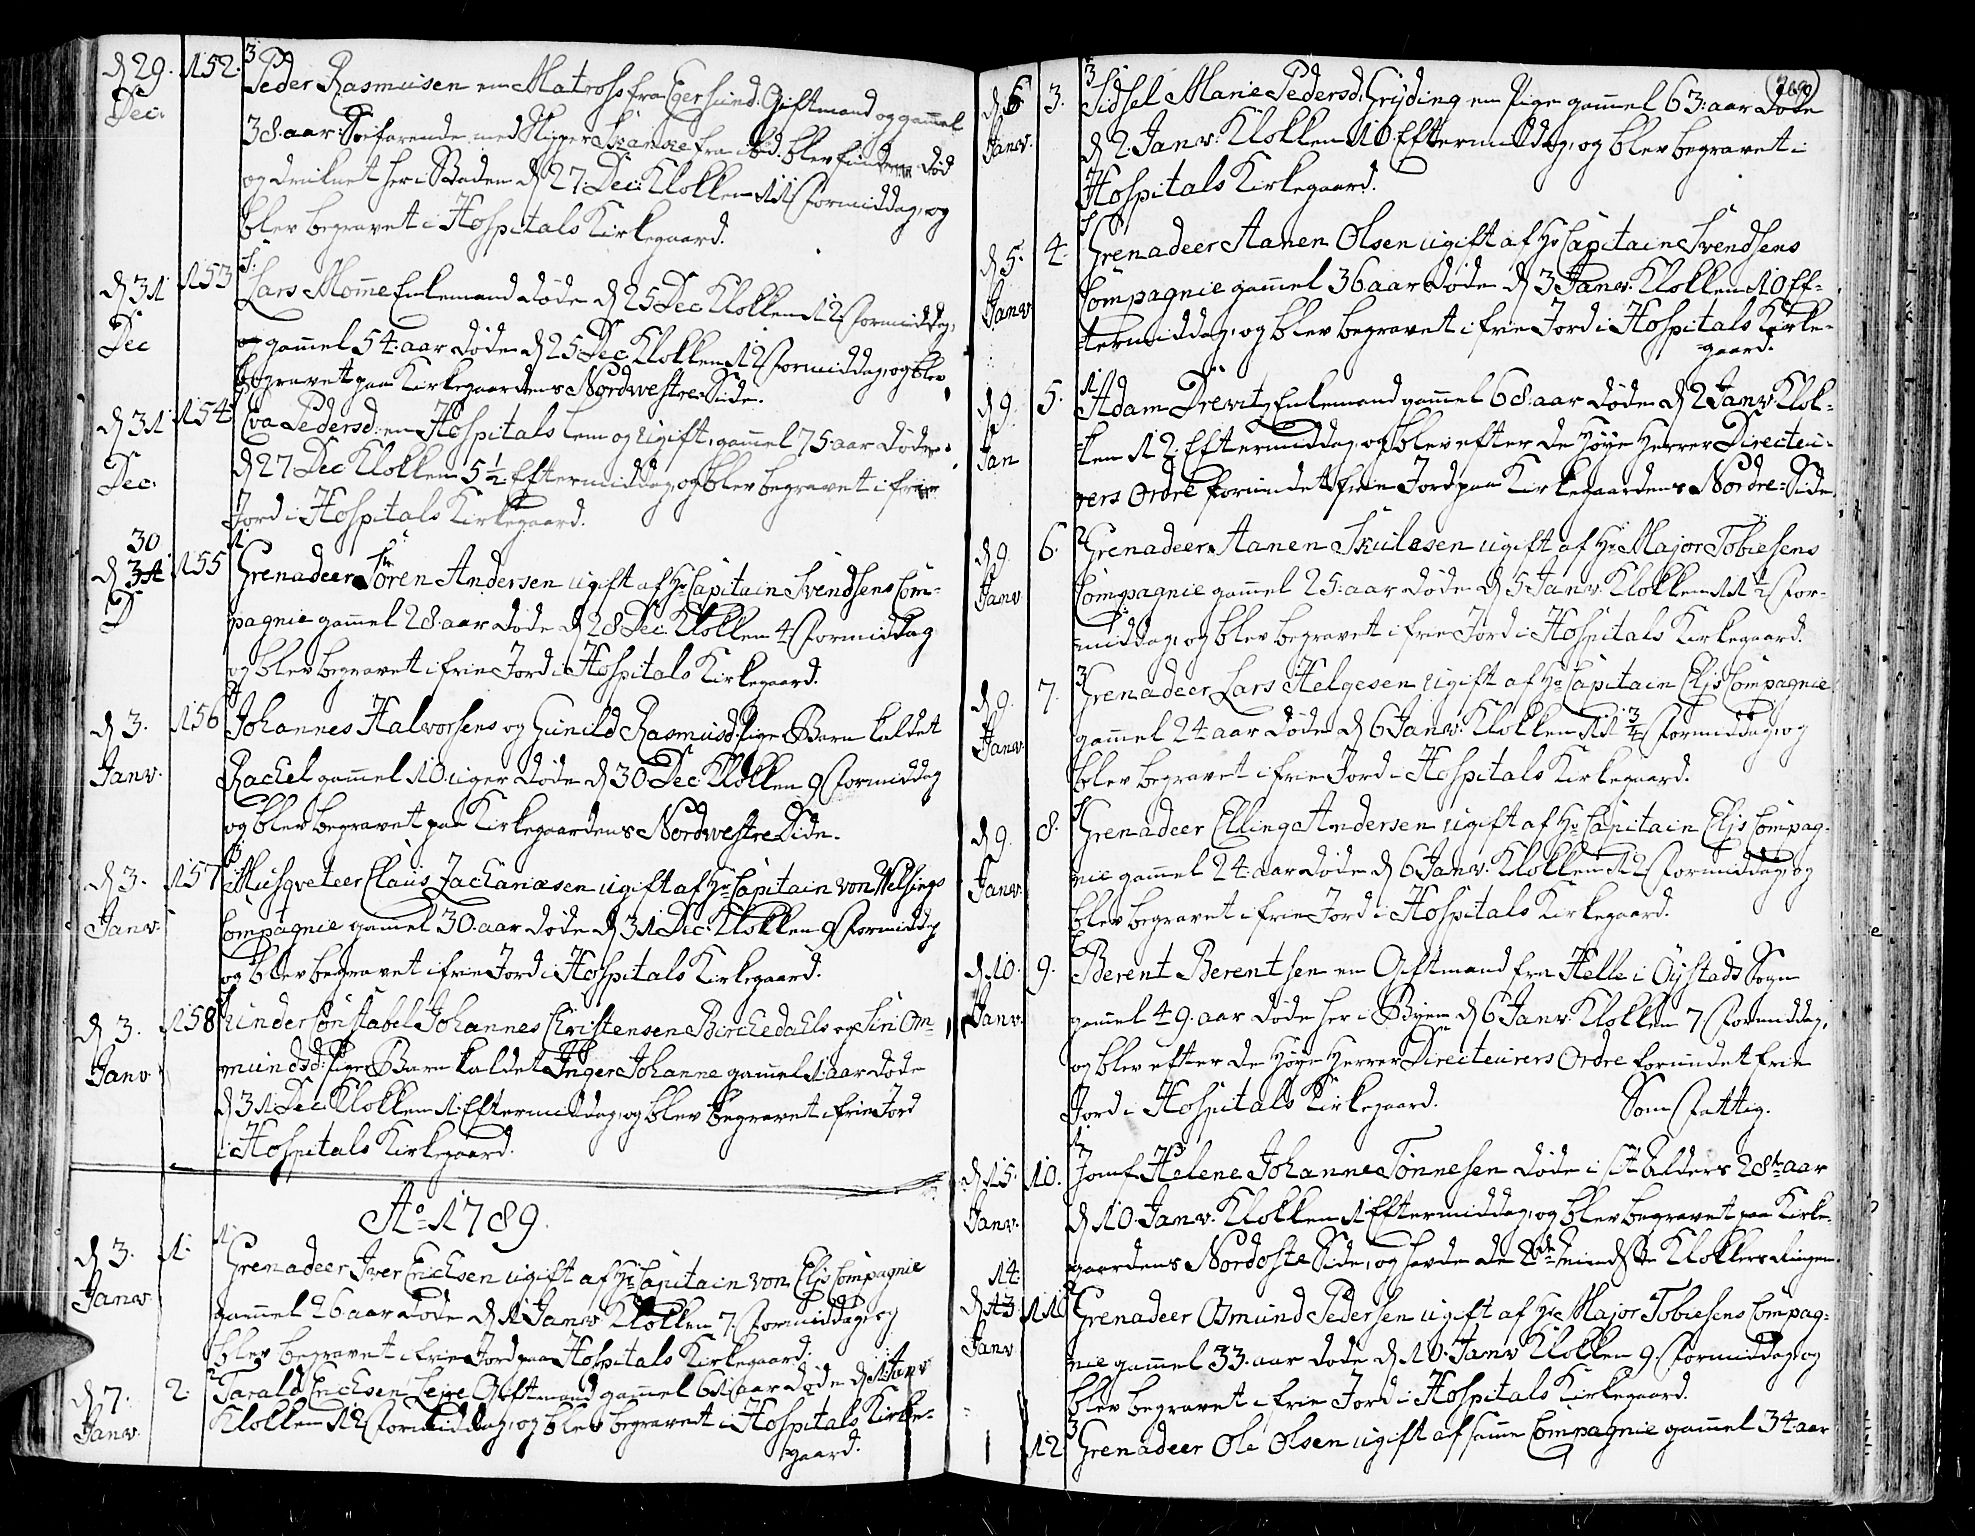 d 29. 152. 3 Peder Rasmusen en Matrohs fra Egersund. Giftmand og gammel
Dec: 38. aar Søefarende med Skipper fra ibd. blev funden Død
og druknet her i Staden d 27 Dec: Klokken 11 Formiddag, og
blev begravet i Hospitals Kirkegaard.
d 31 153 Lars Momme Enkemand døde d 25 Dec Klokken 12 Formiddag,
Dec og gammel 54. aar døde d 25 Dec Klokken 12 Formiddag, og blev
begravet paa Kirkegaardens Nordwestre Side.
d 31 154 Eva Pedersd: en Hospitals Lem og ugift, gammel 75 aar døde
Dec. d 27 Dec Klokken 5 1/2 Eftermiddag, og blev begravet i frie
Jord i Hospitals Kirkegaard.
30
d 31 155 Grenadeer Sören Andersen ugift af Hr Capitain Svendsens Com-
D pagnie gammel 28. aar døde d 28 Dec. Klokken 4 Formiddag
og blev begravet i frie Jord i Hospitals Kirkegaard.
d 3. 156 Johannes Halvorsens og Gunild Rasmusd: Pige Barn kaldet
Janv. Rachel gammel 10. uger døde d 30 Dec. Klokken 9 Formiddag
og blev begravet paa Kirkegaardens Nordwestre Side.
d 3. 157 3 Musqveteer Claus Zachariæsen ugift af Hr Capitain von
Janv. Compagnie gamel 30. aar døde d 31 Dec: Klokken 9 Formiddg
og blev begravet i frie Jord i Hospitals Kirkegaard.
d 3. 158 under Constabel Johannes Christensen Birchedahls og Siri Om-
Janv mundsd: Pige Barn kaldet Inger Johanne gamel 1. aar døde
d 31 Dec Klokken 1. Eftermiddag, og blev begravet i frie Jord
i Hospitals Kirkegaard.
Ao 1789.
d 3. 1. 1. Grenadeer Iver Erichsen ugift af Hr Capitain von Eljs Compagnie
Janv. gammel 26 aar døde d 1 Janv Klokken 7. Formiddag, og
blev begravet i frie Jord paa Hospitals Kirkegaard.
d 7. 2. 2 Tarald Erichsen Leire Giftmand gammel 61 aar døde d 1 Janv
Janv. Klokken 12 Formiddag, og blev begravet i Hospitals Kirke-
gaard.
269
d 6 3. 3 Sidsel Marie Pedersd: Gryding en Pige gammel 63. aar døde
Janv. d 2. Janv. Klokken 10 Eftermiddag, og blev begravet i
Hospitals Kirkegaard.
d 5. 4. Grenadeer Aanen Olsen ugift af Hr Capitain Svendsens
Janv Compagnie gammel 36 aar døde d 3 Janv. Klokken 10 Ef-
termiddag, og blev begravet i frie Jord i Hospitals Kirke-
gaard.
d 9. 5. 1 Adam Drevitz Enkemand gammel 68. aar døde d 2 Janv Klok-
Jan ken 12. Eftermiddag, og blev efter de Høye Herrer Directeu-
rers Ordre forundet frie Jord paa Kirkegaardens Nordre Side.
d 9. 6. 2 Grenadeer Aanen Skulesen ugift af Hr Major Tobiesens
Janv Compagnie gammel 25. aar døde d 5 Janv. Klokken 11 1/2 For-
middag, og blev begravet i frie Jord i Hospitals Kirkegaard.
d 9. 7. 3 Grenadeer Lars Helgesen ugift af Hr Capitain Eljs Compagnie
Janv. gammel 24 aar døde d 6 Janv. Klokken 11 3/4 Formiddag, og
blev begravet i frie Jord i Hospitals Kirkegaard.
d 9. 8. Grenadeer Elling Andersen ugift af Hr Capitain Eljs Compag-
Janv. nie gammel 24. aar døde d 6 Janv. Klokken 12 Formiddag, og
blev begravet i frie Jord i Hospitals Kirkegaard.
d 10. 9. Berent Berentsen en Giftmand fra Helle i Øystads Sogn
Janv. gammel 49. aar døde her i Byen d 6 Janv. Klokken 7 Formiddag,
og blev efter de Høye Herrer Directeurers Ordre forundet frie
Jord i Hospitals Kirkegaard. Som Fattig.
d 15. 10. 1 Jomf. Helene Johanne Tönnesen døde i sit Alders 28de aar
Janv. d 10. Janv. Klokken 1 Eftermiddag, og blev begravet paa Kirke-
gaardens Nordoste Side, og havde de 2de mindste Klokkers Ringen.
14.
d 13 11. 2 Grenadeer Osmund Pedersen ugift af Hr Major Tobiesens Compag-
Janv nie gammel 33. aar døde d 10. Janv Klokken 9. Formiddag, og
blev begravet i frie Jord i Hospitals Kirkegaard.
12 3 Grenadeer Ole Olsen ugift af samme Compagnie gammel 34. aar